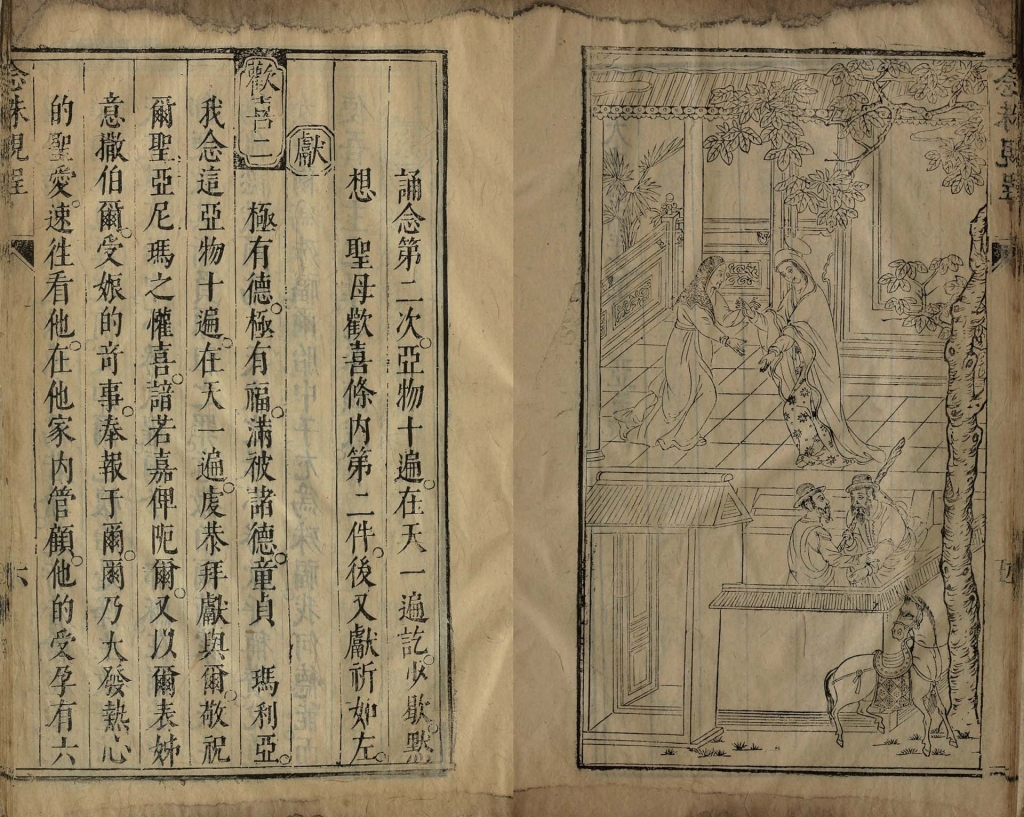 念珠規程
誦念第二次。亞物十遍。在天一遍訖。少歇。默
想 聖母歡喜條內第二件。後又獻祈如左。
獻
歡喜二 極有德。極有福。滿被諸德。童貞 瑪利亞。
我念這亞物十遍。在天一遍。虔恭拜獻與爾。敬祝
爾聖亞尼瑪之懽喜。諳若嘉俾阨爾。又以爾表姊
意撒伯爾。受娠的竒事。奉報于爾。爾乃大發熱心
的聖愛。速徃看他。在他家內管顧。他的受孕有六
念珠規程 六